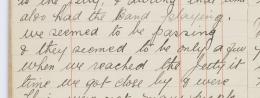 also had the band playing.
we seemed to be passing
& they seemed to be only a few
when we reached the jetty it
time we got close by & were